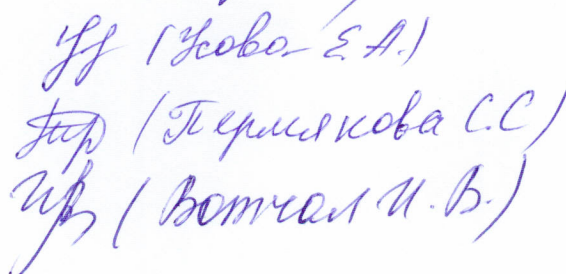 (Усова Е.А.)
(Пермякова С.С)
(Вотчал И.В.)